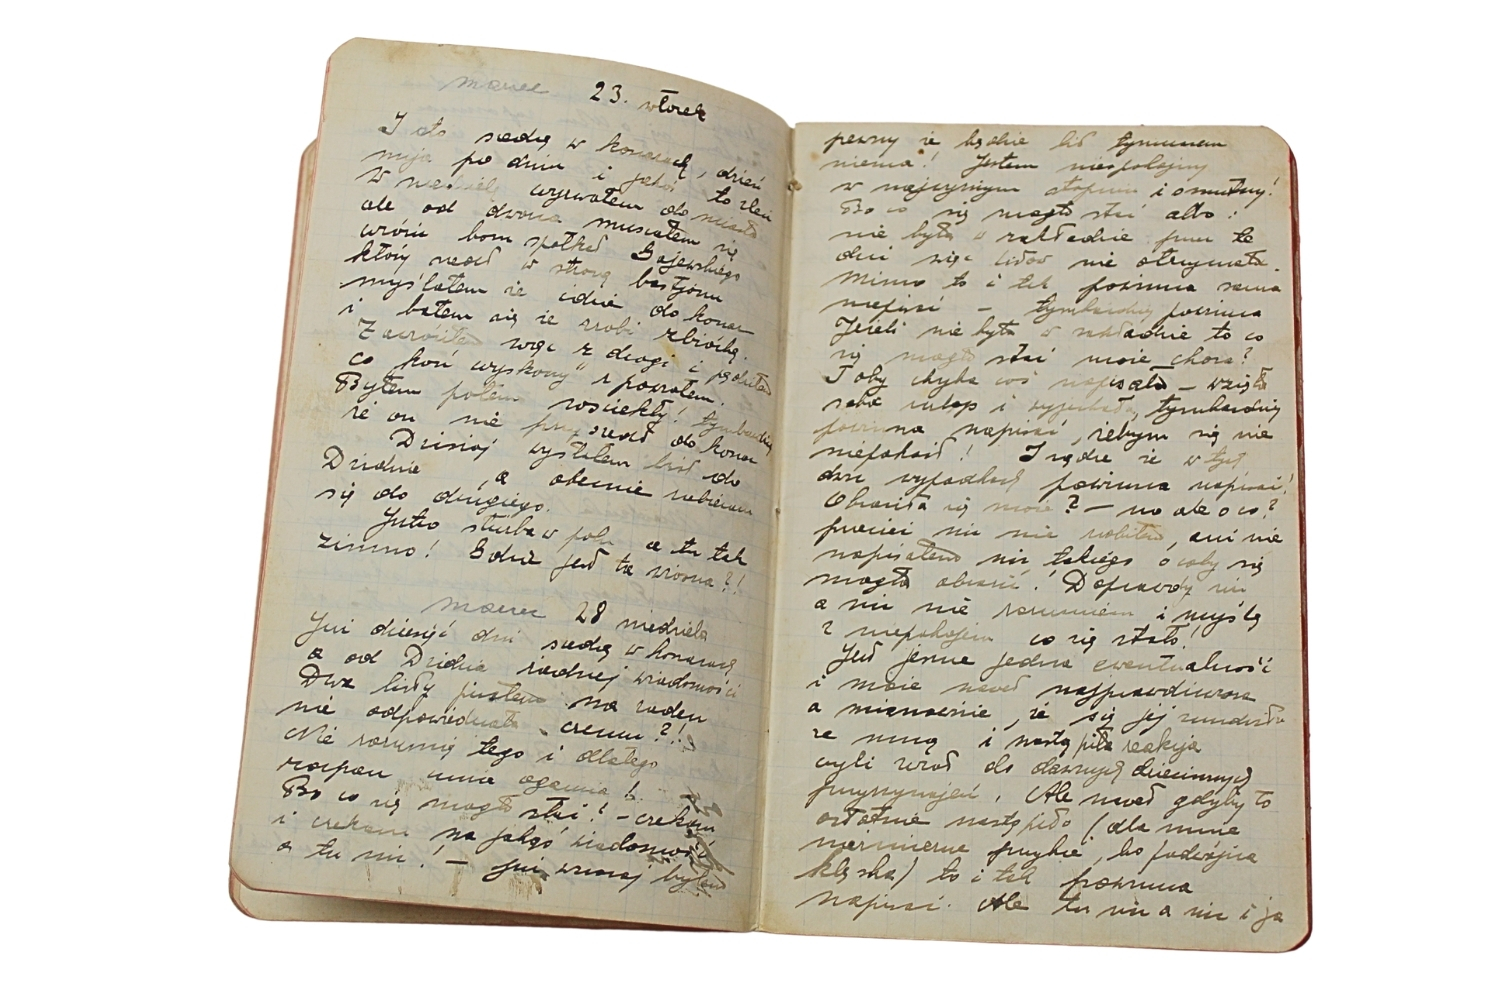 marzec 23. wtorek
I oto siedzę w koszarach, dzień
mija po dniu i jakoś to zleci
W niedzielę wyrwałem do miasta
ale od dworca musiałem się
wrócić bom spotkał Gajewskiego
który szedł w stronę bastjonu
myślałem że idzie do koszar
i bałem się że zrobi zbiórkę.
Zawróciłem więc z drogi i
co koń wyskoczy" z powrotem.
Byłem potem wściekły! tymbardziej
że on nie przyszedł do koszar
Dzisiaj wysłałem list do
Dzidzie, a obecnie zabieram
się do drugiego.
Jutro służba w polu a tu tak
zimno! Gdzie jest ta wiosna?!
marzec 28 niedziela
Już dziesięć dni siedzę w koszarach
a od Dzidzia żadnej wiadomości
Dwa listy pisałem na żaden
nie odpowiedziała czemu?!
Nie rozumię tego i dlatego
rozpacz mnie ogarnia!
Bo co się mogło stać? - czekam
i czekam na jakąś wiadomość
a tu nic! - Już wczoraj byłem
pewny że będzie list tymczasem
niema! Jestem niespokojny
w najwyższym stopniu i smutny!
Bo co się mogło stać albo:
nie była w zakładzie przez te
dni więc listów nie otrzymała.
Mimo to i tak powinna sama
napisać - tymbardziej powinna
Jeżeli nie była w zakładzie to co
się mogło stać może chora?
Toby chyba coś napisała - wzięła
sobie urlop i wyjechała, tymbardziej
powinna napisać, żebym się nie
niepokoił! I sądzę że w tych
dwu wypadkach powinna napisać!
Obraziła się może? - no ale o co?
przecież nic nie robiłem, ani nie
napisałem nic takiego o coby się
mogła obrazić! Doprawdy nic
a nic nie rozumiem i myślę
z niepokojem co się stało!
Jest jeszcze jedna ewentualność
i może nawet najprawdziwsza
a mianowicie, że się jej znudziło
ze mną i nastąpiła reakcja
czyli wrót do dawnych dziecinnych
przyzwyczajeń. Ale nawet gdyby to
ostatnie nastąpiło (dla mnie
niezmiernie przykre, bo podwójna
klęska) to i tak powinna
napisać. Ale tu nic a nic i ja